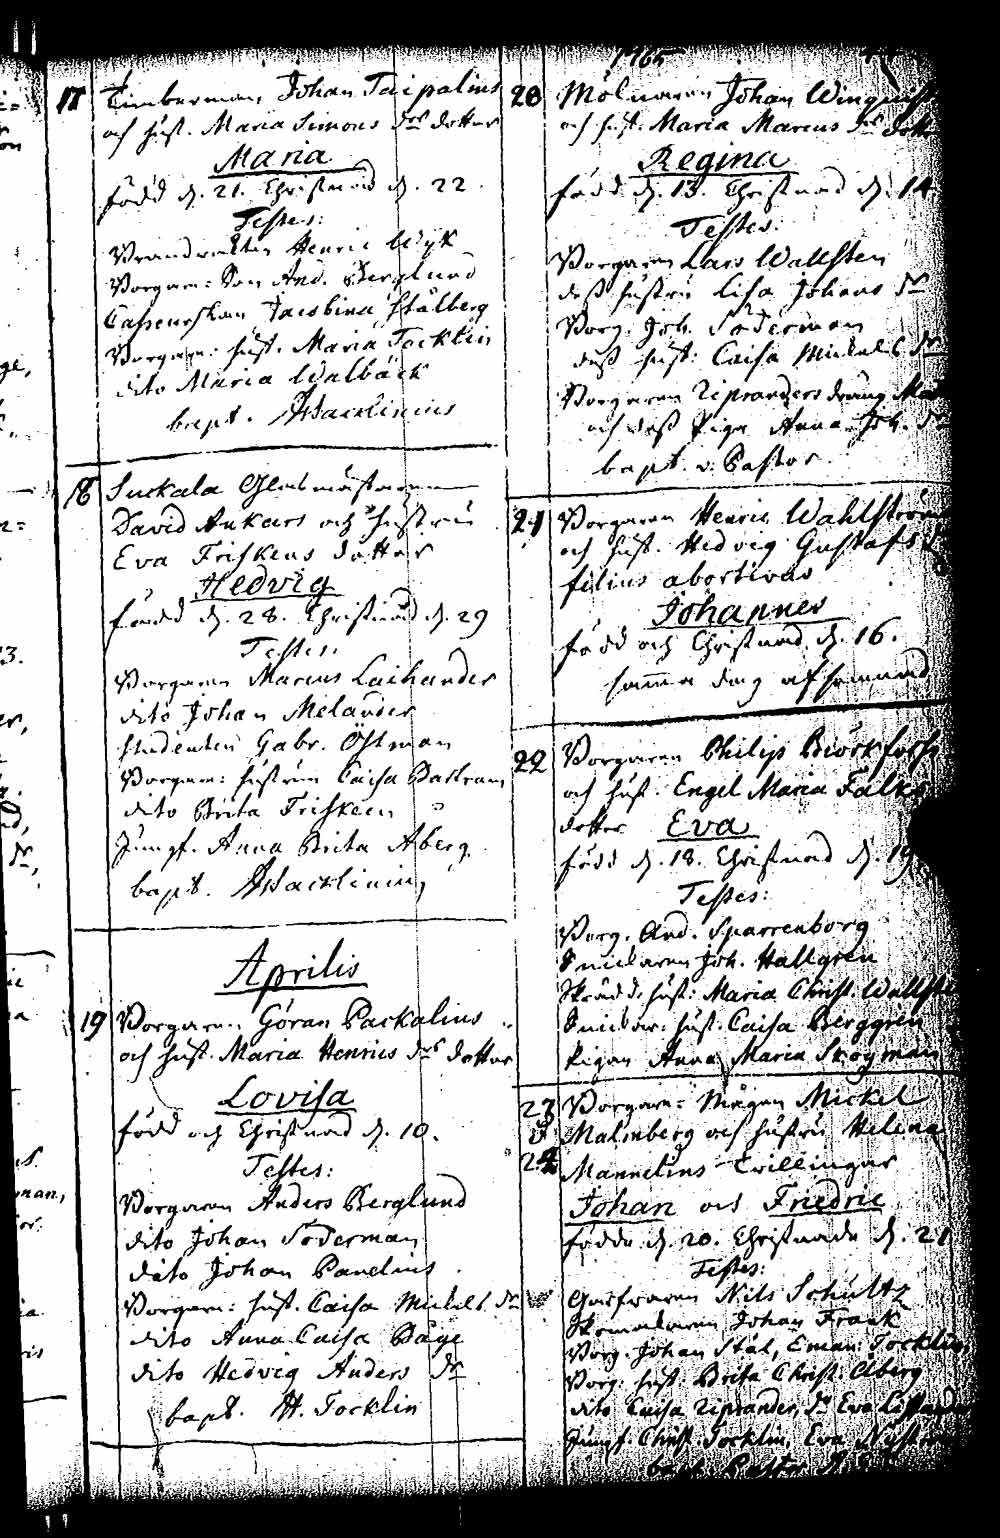 1765
17 Timberman Johan Taipalius
och hust. Maria Simons dr dotter
Maria
född d. 21. Christnad d. 22.
Testes:
Henric Wijk
Borgare: Son And. Berglund
Jacobina Stålberg
Borgare: hust. Maria Tocklin
dito Maria Walbäck
bapt. Wacklinius
18 Suckala Glasmästaren
David Ankars och hustrun
Eva Friskens dotter
Hedvig
född d. 28. Christnad d. 29
Testes:
Borgaren Marcus Laihander
dito Johan Melander
Studenten Gabr. Östman
Borgare: hustrun Caisa Bastram
dito Brita Friskeen
Jungf. Anna Brita Åberg
bapt. Wacklinius
Aprilis
19 Borgaren Göran Packalius
och hust. Maria Henrics drs dotter
Lovisa
född och Christnad d. 10.
Testes:
Borgaren Anders Berglund
dito Johan Söderman
dito Johan Panelius
Borgare: hust. Caisa Mickels dr
dito Anna Caisa Båge
dito Hedvig Anders dr
bapt. H. Tocklin
20 Mölnaren Johan
och hust. Maria Marcus drs dotter
Regina
född d. 13. Christnad d. 14
Testes:
Borgaren Lars Wallsten
dess hustru Lisa Johans dr
Borg. Joh. Söderman
dess hust: Caisa Mickels dr
Borgaren Zipranders dräng
och dess Piga Anna Joh. dr
bapt. v. Pastor
21 Borgaren Henric Wahlström
och hust. Hedvig Gustafs
filius abortivus
Johannes
född och Christnad d. 16.
samma dag afsomnad
22 Borgaren Philip Biörkforss
och hust. Engel Maria Falks
dotter Eva
född d. 18. Christnad d. 19
Testes:
Borg. And. Sparrenborg
Snickaren Joh. Hallgren
Skrädd. hust: Maria Christ. Wallste
Snickar: hust. Caisa Berggren
Pigan Anna Maria Skogman
23 Borgare: Mågen Mickel
& Malmberg och hustru Helena
24 Mannelius Tvillingar
Johan och Friedric
födde d. 20. Christnade d. 21
Testes:
Garfvaren Nils Schultz
Skomakaren Johan Frank
Borg. Johan Stål, Eman: Tocklin
Borg: hust. Brita Christ: Åberg
dito Caisa Ziprander, do Eva
Jungf. Christ. Tocklin, Eva
bapt. Pastor